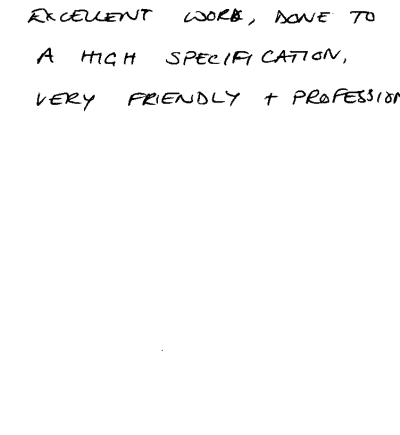 EXCELLENT WORK, DONE TO
A HIGH SPECIFICATION,
VERY FRIENDLY + PROFESSION